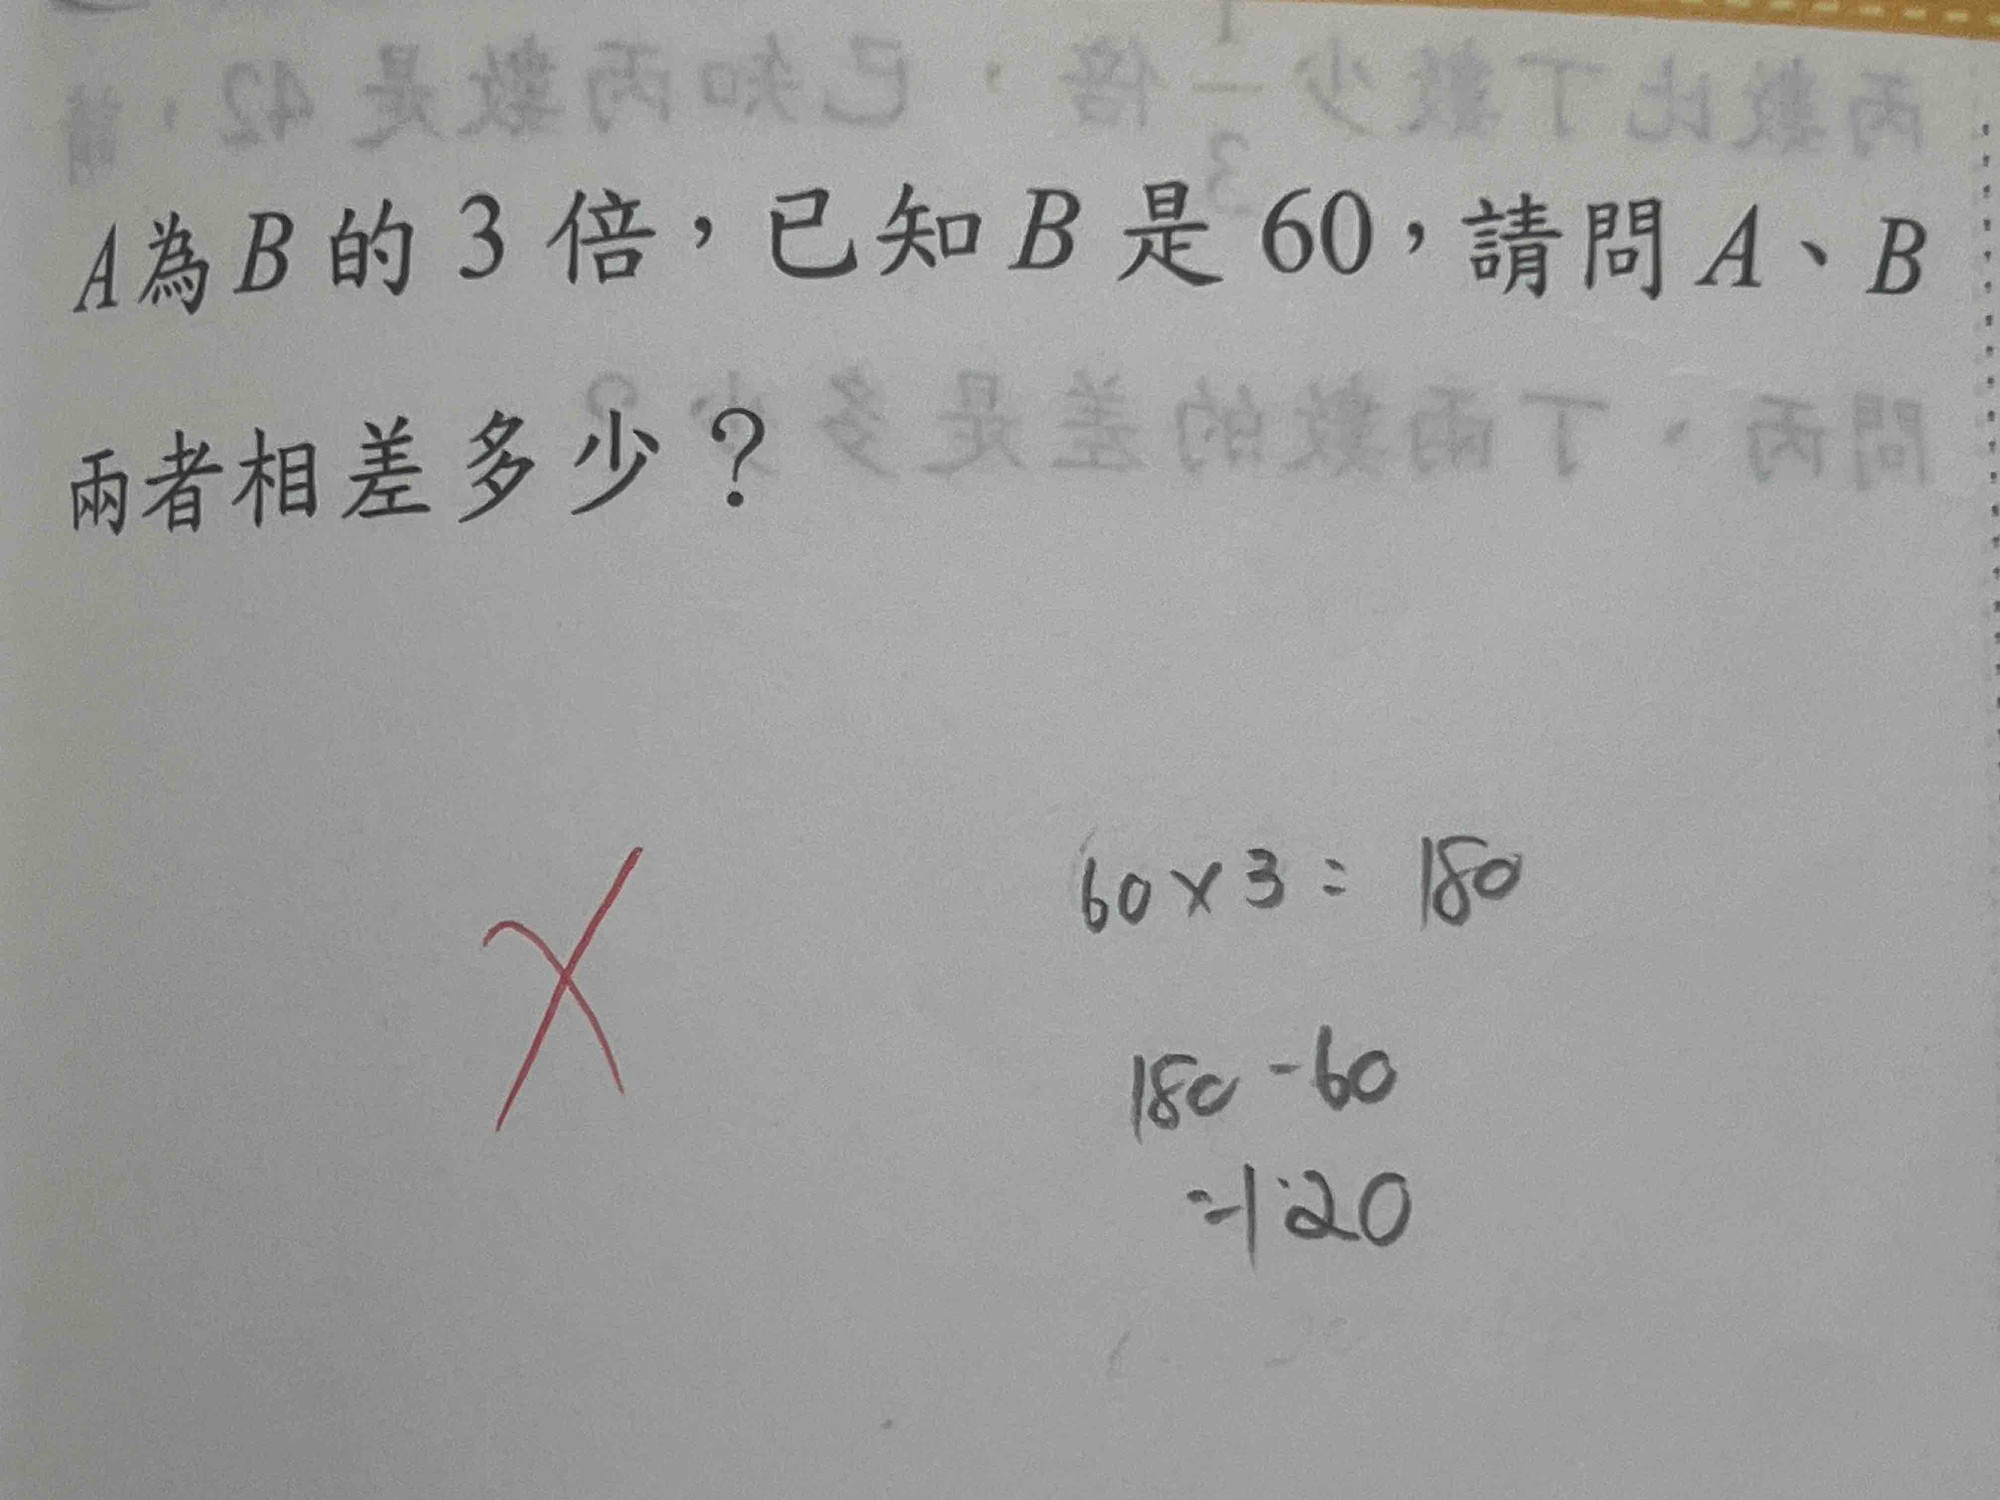 A為B的 3 倍，已知 B 是 60，請問 A、B
兩者相差多少？
60×3= 180
180-60
=120